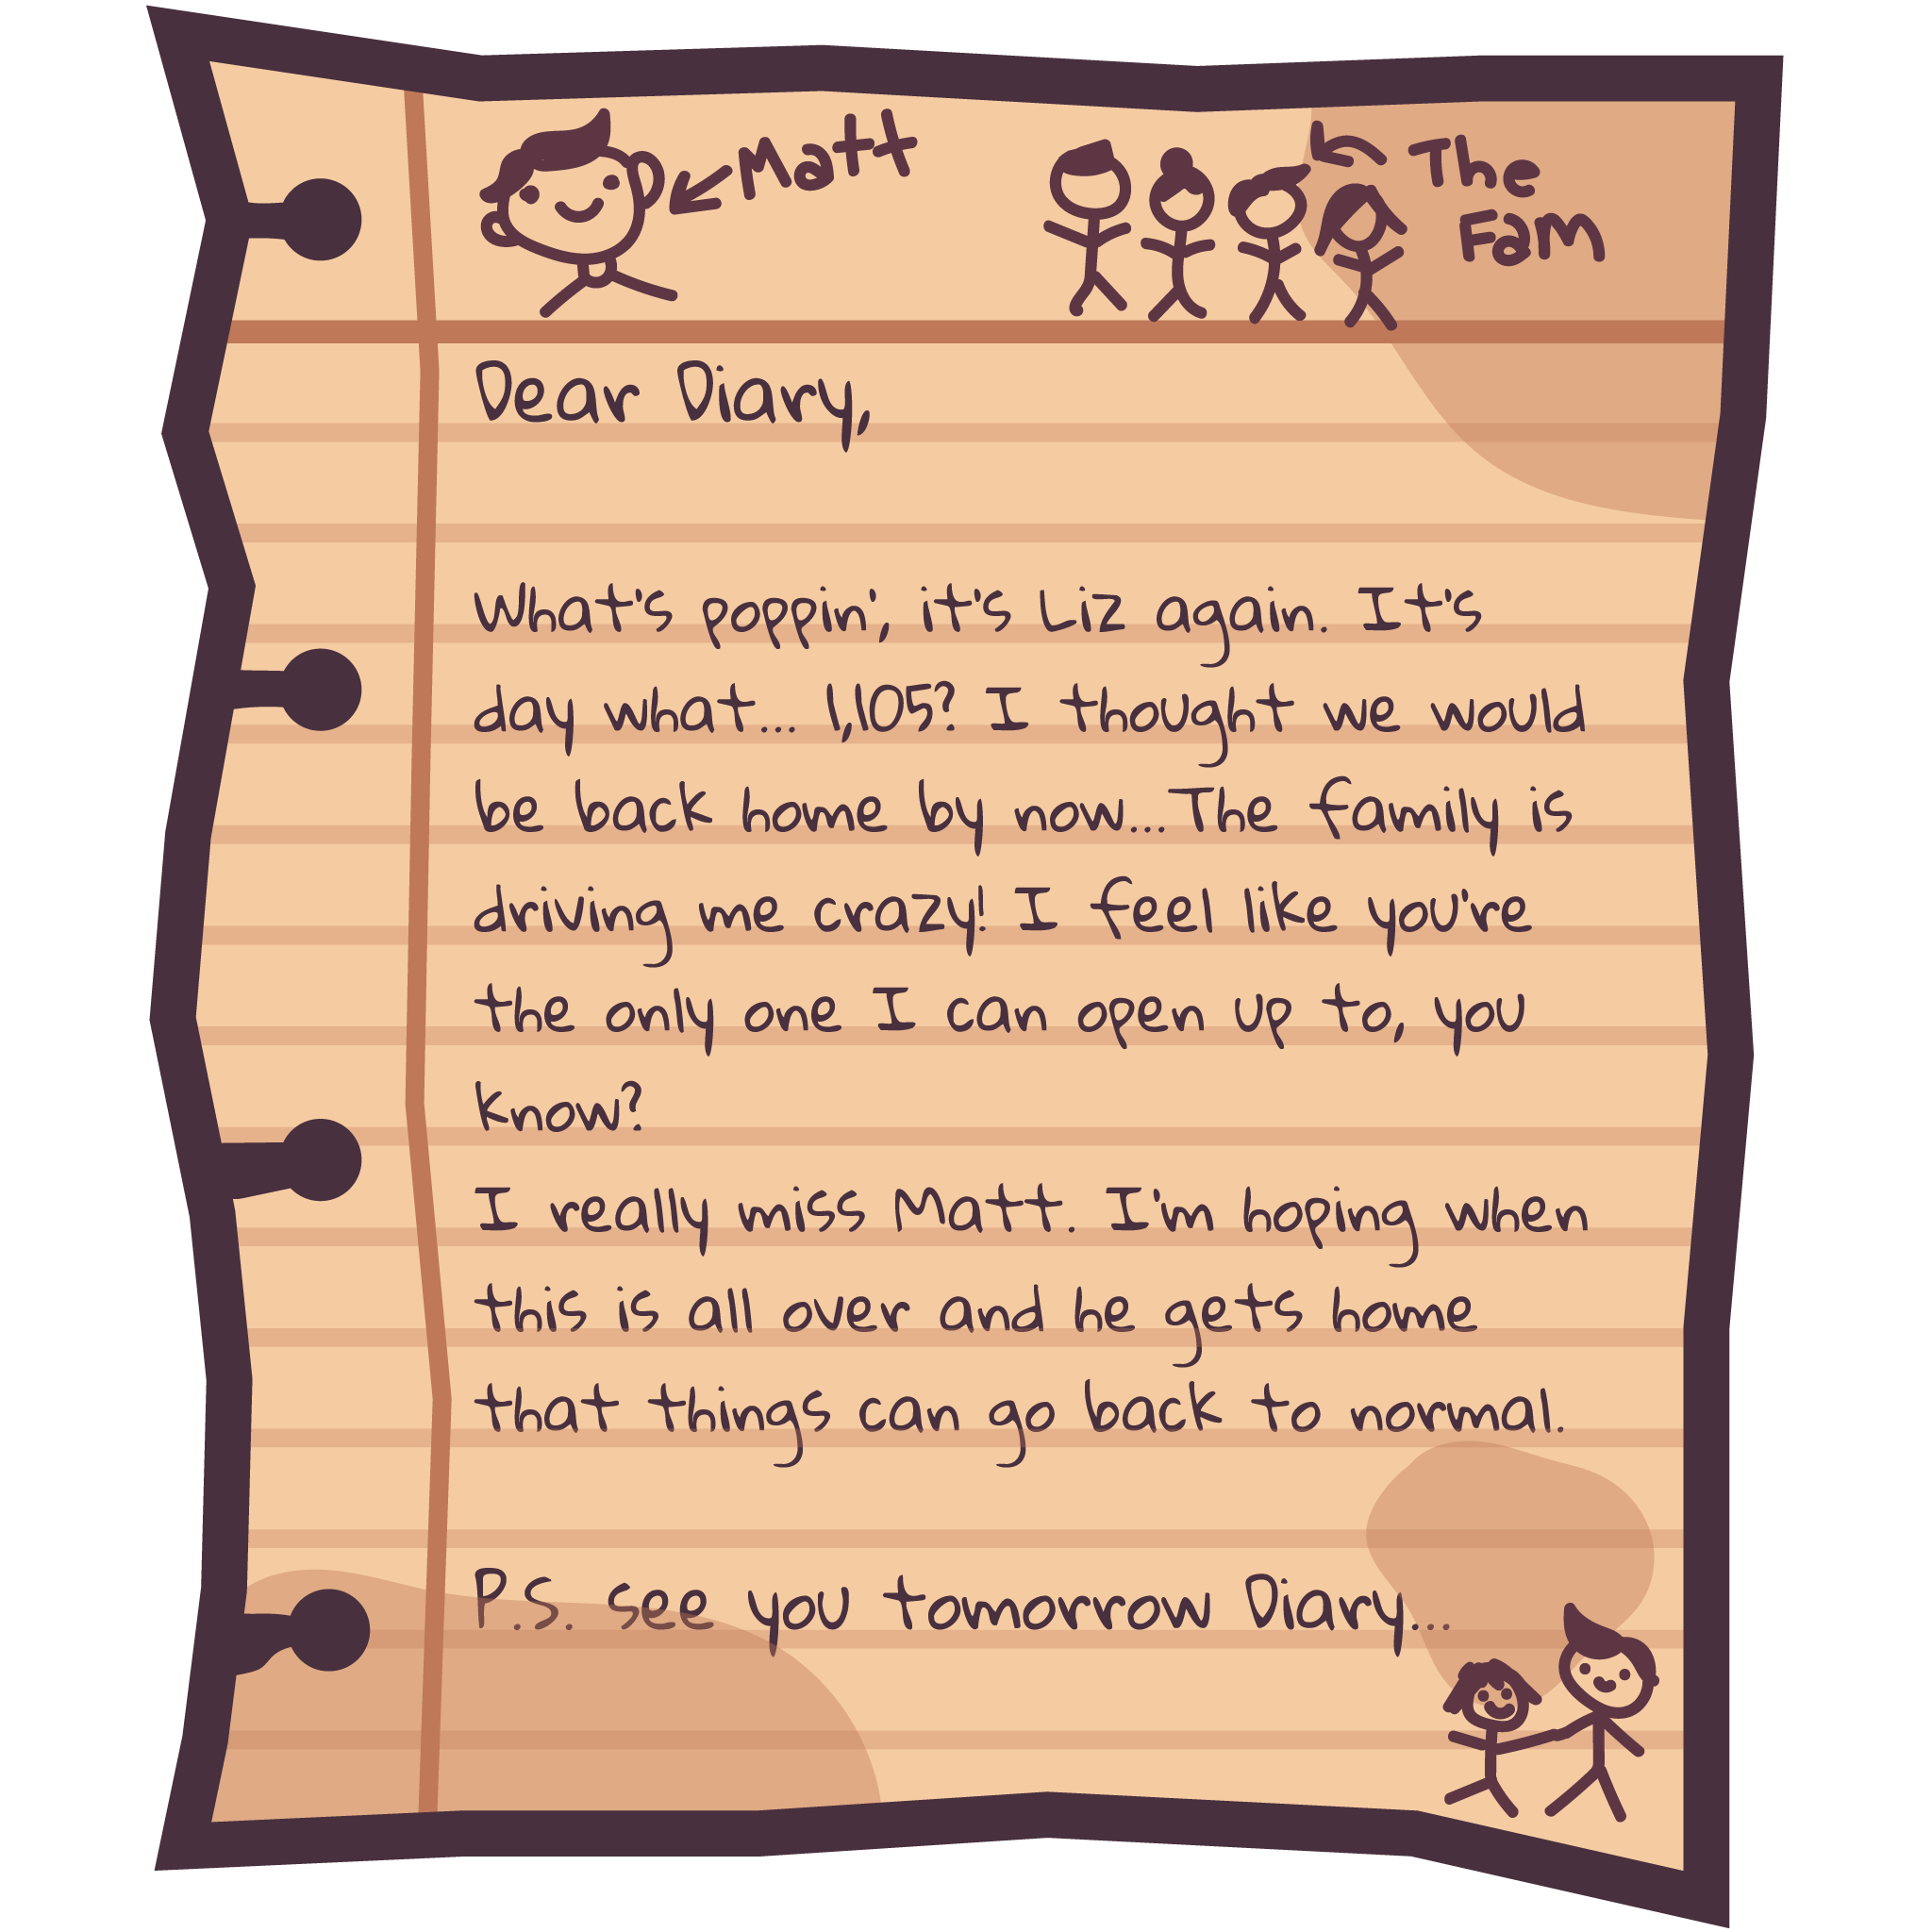 Matt
The
Fam
Dear Diary,
What's poppin', it's Liz again. It's
day what... 1,105? I thought we would
be back home by now...The family is
driving me crazy! I feel like you're
the only one I can open up to, you
know?
I really miss Matt. I'm hoping when
this is all over and he gets home
that things can go back to normal.
P.S. see you tomorrow Diary...